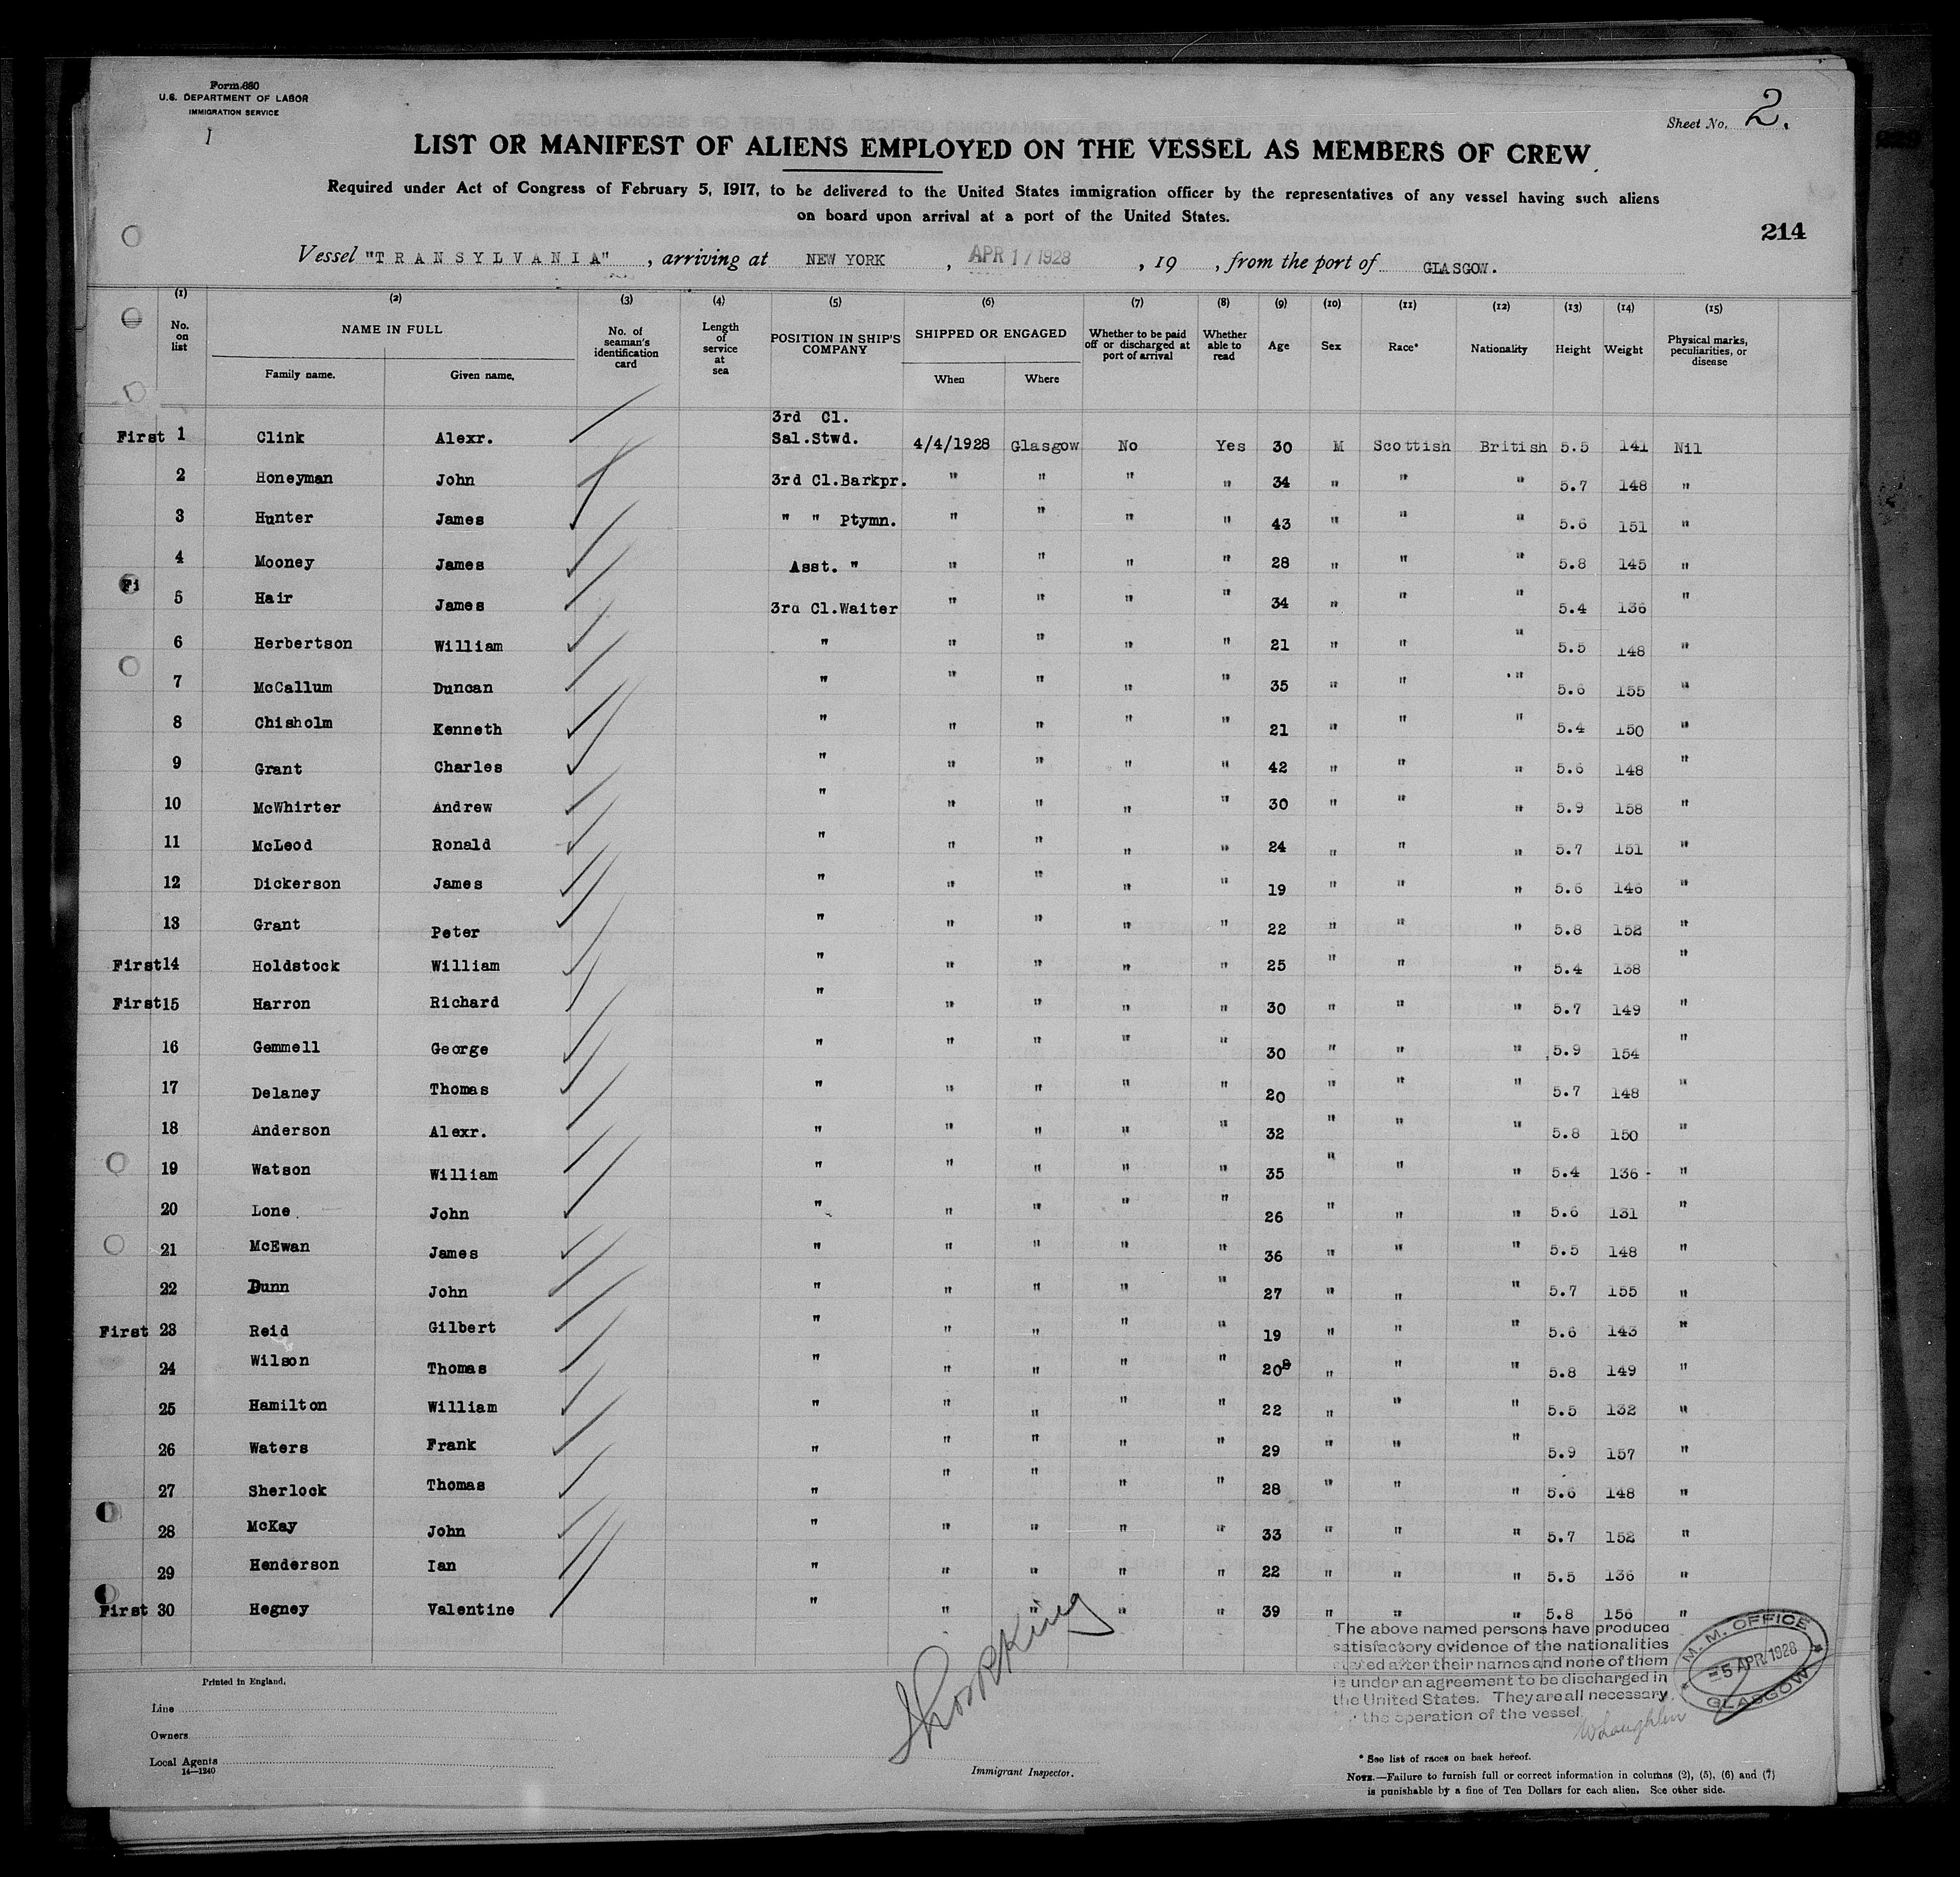 Form 680
U.S. DEPARTMENT OF LABOR
IMMIGRATION SERVICE
1
Sheet No. 2.
LIST OR MANIFEST OF ALIENS EMPLOYED ON THE VESSEL AS MEMBERS OF CREW
Required under Act of Congress of February 5, 1917, to be delivered to the United States immigration officer by the representatives of any vessel having such aliens
on board upon arrival at a port of the United States.
214
Vessel "TRANSYLVANIA", arriving at NEW YORK, APR 17 1928, 19 , from the port of GLASGOW.
(1) (2) (3) (4) (5) (6) (7) (8) (9) (10) (11) (12) (13) (14) (15)
No. on list NAME IN FULL Family name. Given name. No. of seaman's identification card Length of service at sea POSITION IN SHIP'S COMPANY SHIPPED OR ENGAGED When Where Whether to be paid off or discharged at port of arrival Whether able to read Age Sex Race* Nationality Height Weight Physical marks, peculiarities, or disease
First 1 Clink Alexr. 3rd Cl. Sal.Stwd. 4/4/1928 Glasgow No Yes 30 M Scottish British 5.5 141 Nil
2 Honeyman John 3rd Cl.Barkpr. " " " " 34 " " " 5.7 148 "
3 Hunter James " " Ptymn. " " " " 43 " " " 5.6 151 "
4 Mooney James Asst. " " " " " 28 " " " 5.8 145 "
Fi 5 Hair James 3rd Cl.Waiter " " " " 34 " " " 5.4 136 "
6 Herbertson William " " " " " 21 " " " 5.5 148 "
7 McCallum Duncan " " " " " 35 " " " 5.6 155 "
8 Chisholm Kenneth " " " " " 21 " " " 5.4 150 "
9 Grant Charles " " " " " 42 " " " 5.6 148 "
10 McWhirter Andrew " " " " " 30 " " " 5.9 158 "
11 McLeod Ronald " " " " " 24 " " " 5.7 151 "
12 Dickerson James " " " " " 19 " " " 5.6 146 "
13 Grant Peter " " " " " 22 " " " 5.8 152 "
First 14 Holdstock William " " " " " 25 " " " 5.4 138 "
First 15 Harron Richard " " " " " 30 " " " 5.7 149 "
16 Gemmell George " " " " " 30 " " " 5.9 154 "
17 Delaney Thomas " " " " " 20 " " " 5.7 148 "
18 Anderson Alexr. " " " " " 32 " " " 5.8 150 "
19 Watson William " " " " " 35 " " " 5.4 136 "
20 Lone John " " " " " 26 " " " 5.6 131 "
21 McEwan James " " " " " 36 " " " 5.5 148 "
22 Dunn John " " " " " 27 " " " 5.7 155 "
First 23 Reid Gilbert " " " " " 19 " " " 5.6 143 "
24 Wilson Thomas " " " " " 20 " " " 5.8 149 "
25 Hamilton William " " " " " 22 " " " 5.5 132 "
26 Waters Frank " " " " " 29 " " " 5.9 157 "
27 Sherlock Thomas " " " " " 28 " " " 5.6 148 "
28 McKay John " " " " " 33 " " " 5.7 152 "
29 Henderson Ian " " " " " 22 " " " 5.5 136 "
First 30 Hegney Valentine " " " " " 39 " " " 5.8 156 "
The above named persons have produced
satisfactory evidence of the nationalities
stated after their names and none of them
is under an agreement to be discharged in
the United States. They are all necessary
the operation of the vessel.
M. M. OFFICE
5 APR. 1928
GLASGOW
McLaughlin
Printed in England.
Line
Owners
Local Agents
14—1240
Immigrant Inspector.
* See list of races on back hereof.
NOTE.—Failure to furnish full or correct information in columns (2), (5), (6) and (7)
is punishable by a fine of Ten Dollars for each alien. See other side.